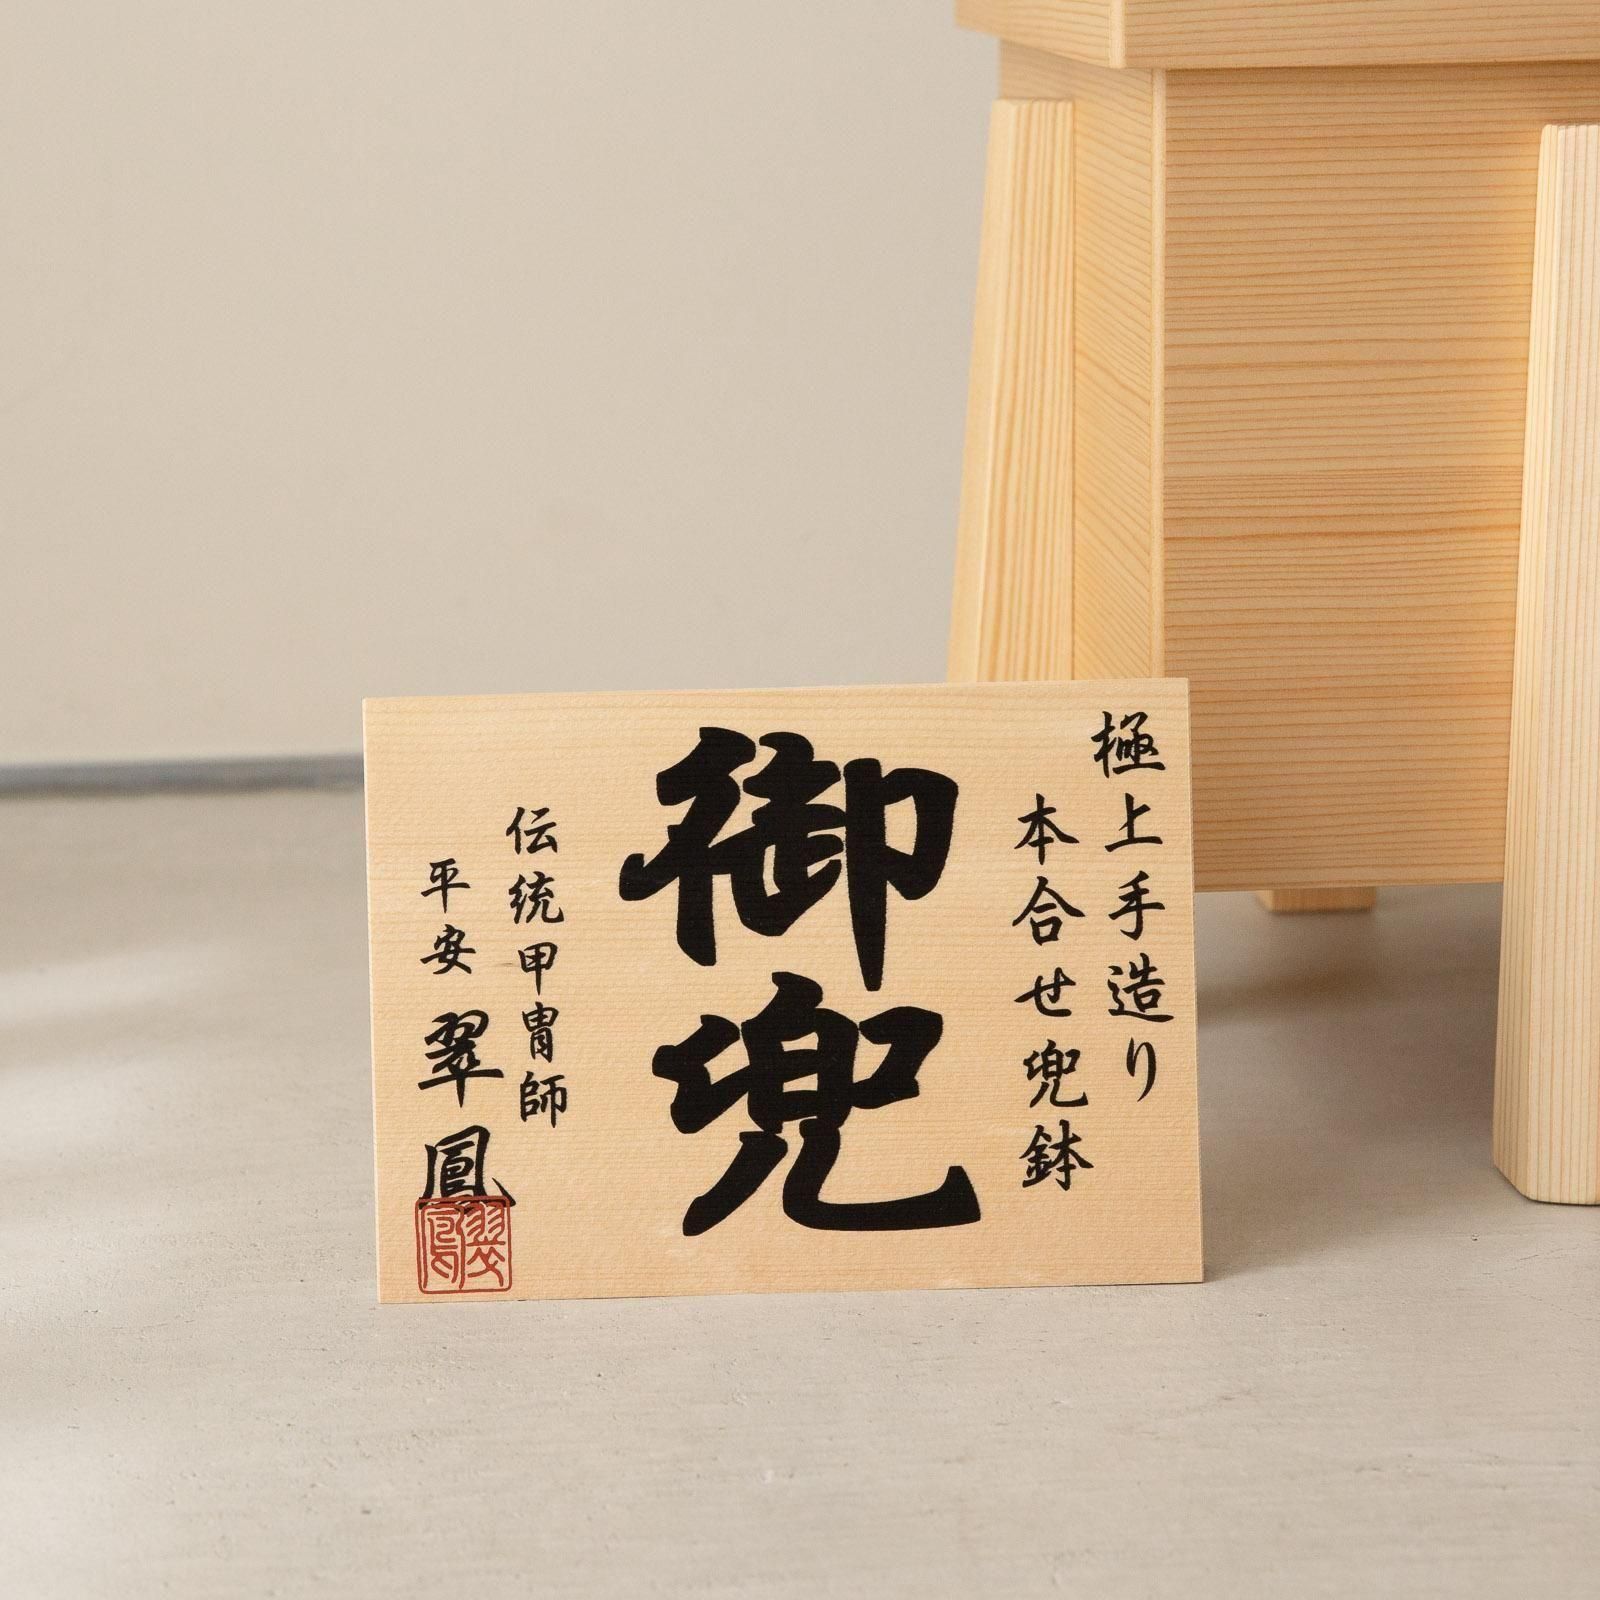 極上手造り
本合せ兜鉢
御兜
伝統甲冑師
平安 翠鳳
翠鳳